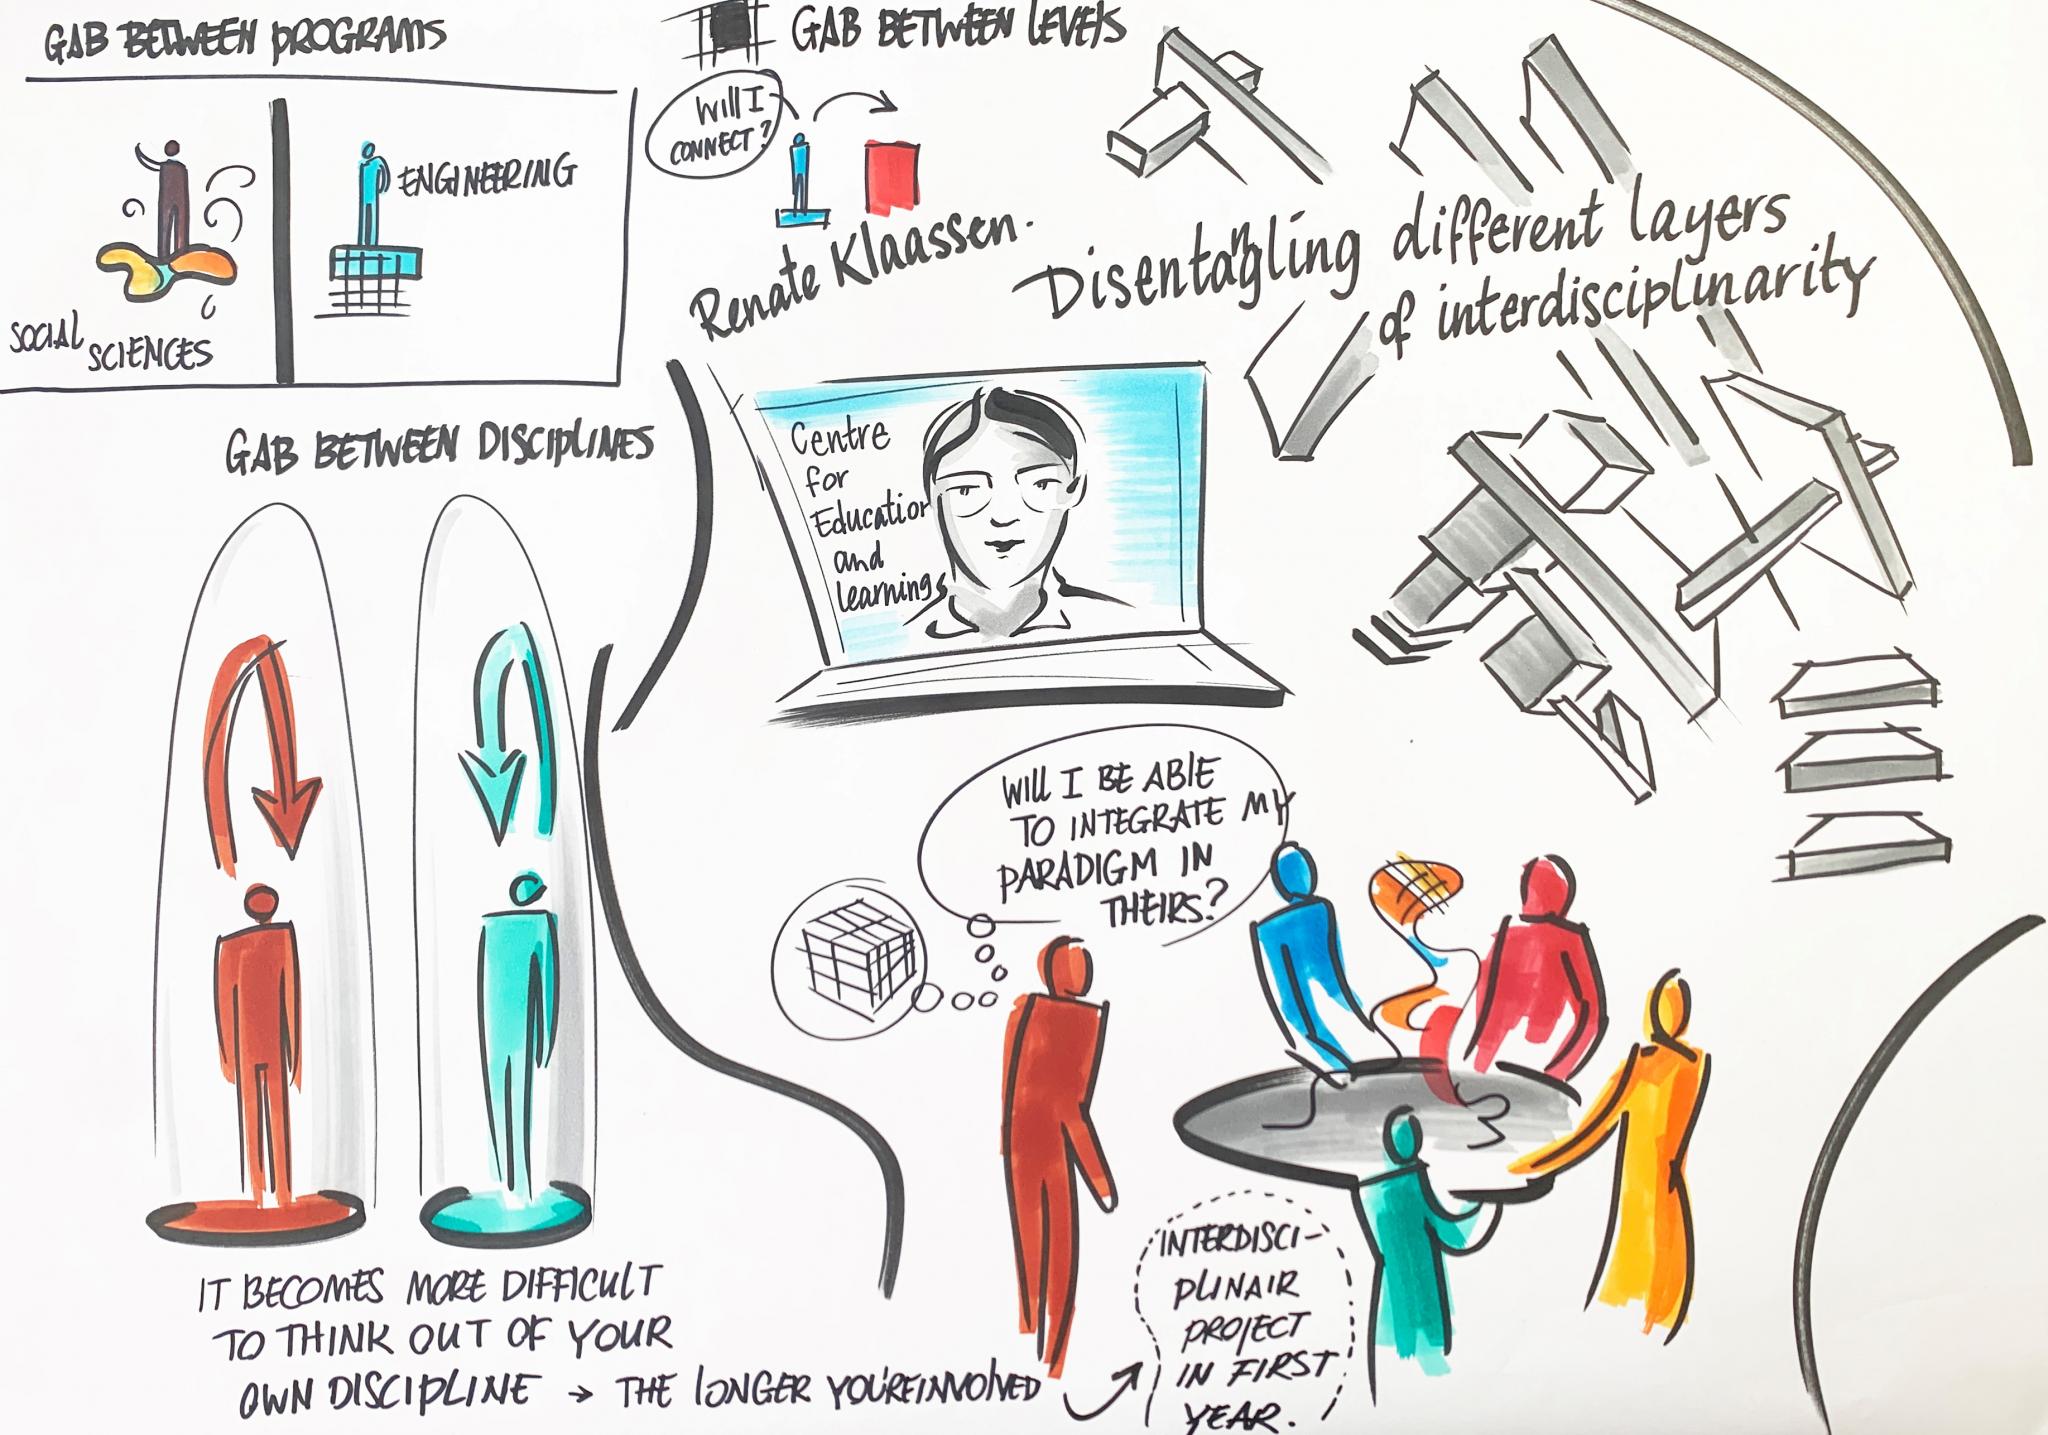 GAB BETWEEN PROGRAMS
SOCIAL
SCIENCES
ENGINEERING
GAB BETWEEN LEVELS
Will I
CONNECT?
Renate Klaassen.
Disentangling different layers
of interdisciplinarity
Centre
for
Education
and
learning
GAB BETWEEN DISCIPLINES
WILL I BE ABLE
TO INTEGRATE MY
PARADIGM IN
THEIRS?
IT BECOMES MORE DIFFICULT
TO THINK OUT OF YOUR
OWN DISCIPLINE → THE LONGER YOU'RE INVOLVED
INTERDISCI-
PLINAIR
PROJECT
IN FIRST
YEAR.